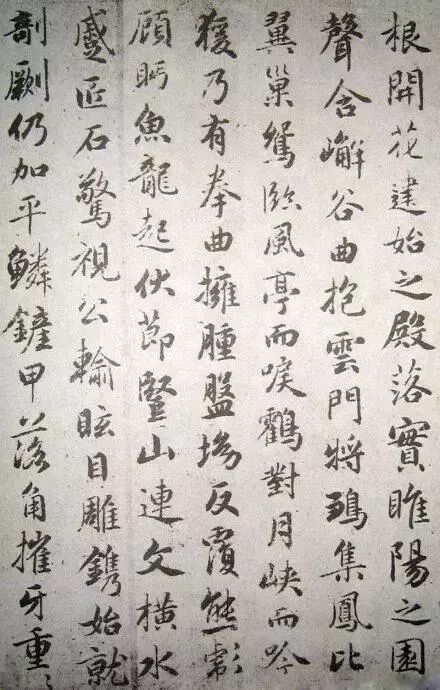 根開花建始之殿落實睢陽之園
聲含嶰谷曲抱雲門將鶵集鳳比
翼巢鴛臨風亭而唳鶴對月峽而吟
猨乃有拳曲擁腫盤坳反覆熊彪
顧盻魚龍起伏節豎山連文橫水
蹙匠石驚視公輸眩目雕鐫始就
剞劂仍加平鱗鏟甲落角摧牙重〻